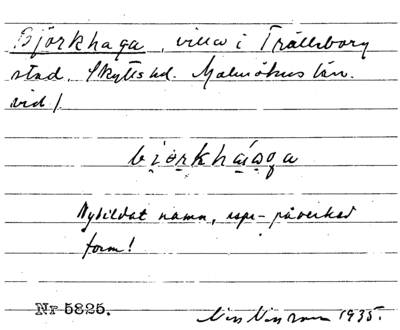 Björkhaga, villa i Trälleborg
stad. Skytts hd. Malmöhus län.
vid /.
björkhaga
Nybildat namn, rspr-påverkad
form!
Nr 5825. 1935.